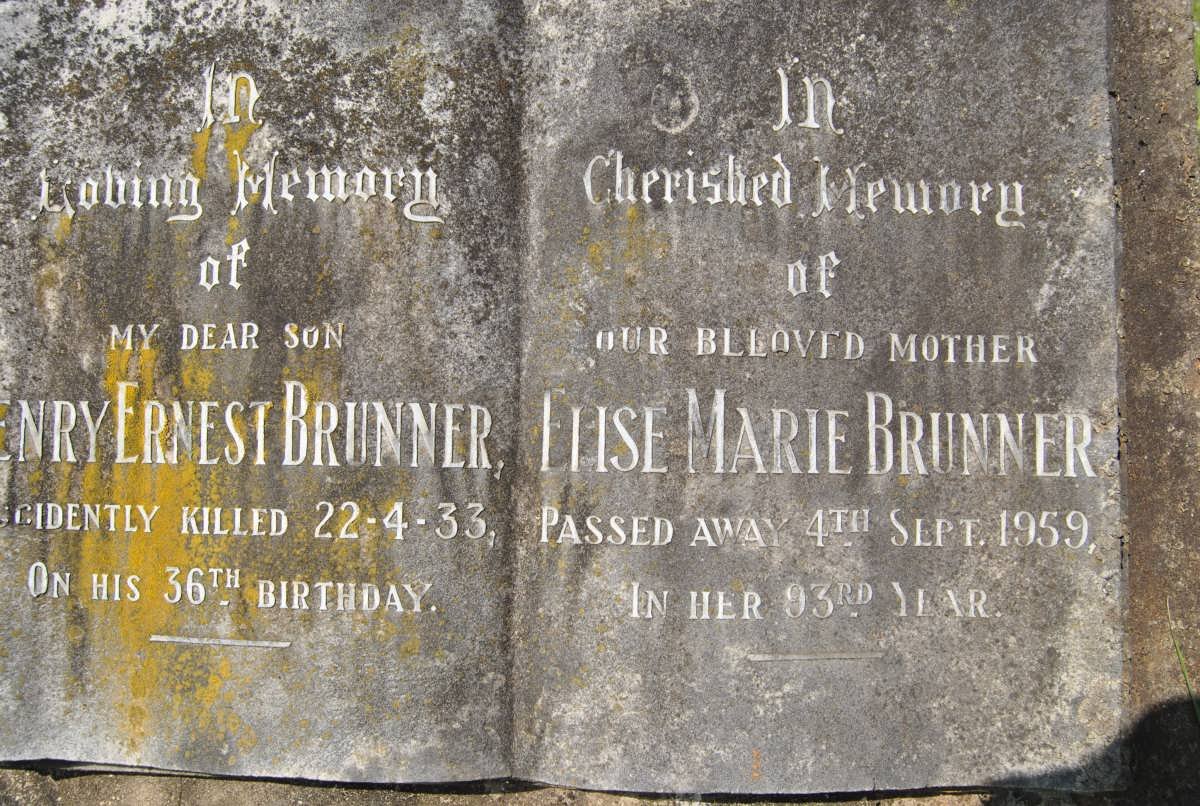 In
Loving Memory
of
MY DEAR SON
ENRY ERNEST BRUNNER,
CIDENTLY KILLED 22-4-33,
ON HIS 36TH BIRTHDAY.
In
Cherished Memory
of
OUR BELOVED MOTHER
ELISE MARIE BRUNNER
PASSED AWAY 4TH SEPT. 1959,
IN HER 93RD YEAR.